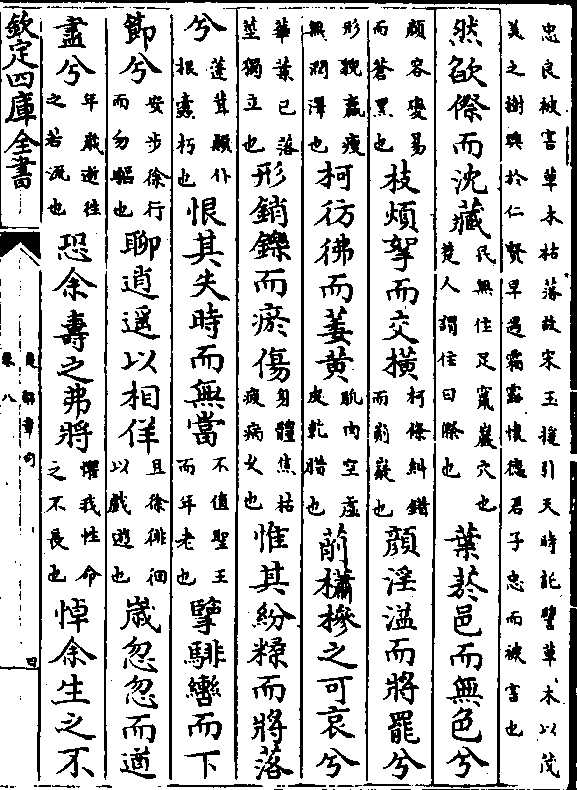 忠良被害草木枯落故宋玉援引天時託譬草木以茂
美之樹興於仁賢早遇霜露懷德君子忠而被害也
然欿傺而沈藏民無住足竄巖穴也楚人謂住曰傺也葉菸邑而無色兮
顏容變易而蒼黑也枝煩挐而交橫柯條糾錯而崱嶷也顏淫溢而將罷兮
形貌羸瘦無潤澤也柯彷彿而萎黃肌肉空虛皮乾腊也萷櫹槮之可哀兮
華葉已落莖獨立也形銷鑠而瘀傷身體焦枯瘦病久也惟其紛糅而將落
兮蓬茸顛仆根蠹朽也恨其失時而無當不值聖王而年老也擥騑轡而下
節兮安步徐行而勿驅也聊逍遥以相佯且徐徘徊以戲遊也歲忽忽而遒
盡兮年歲逝往之若流也恐余壽之弗將懼我性命之不長也悼余生之不
欽定四庫全書
楚辭章句
卷八
四